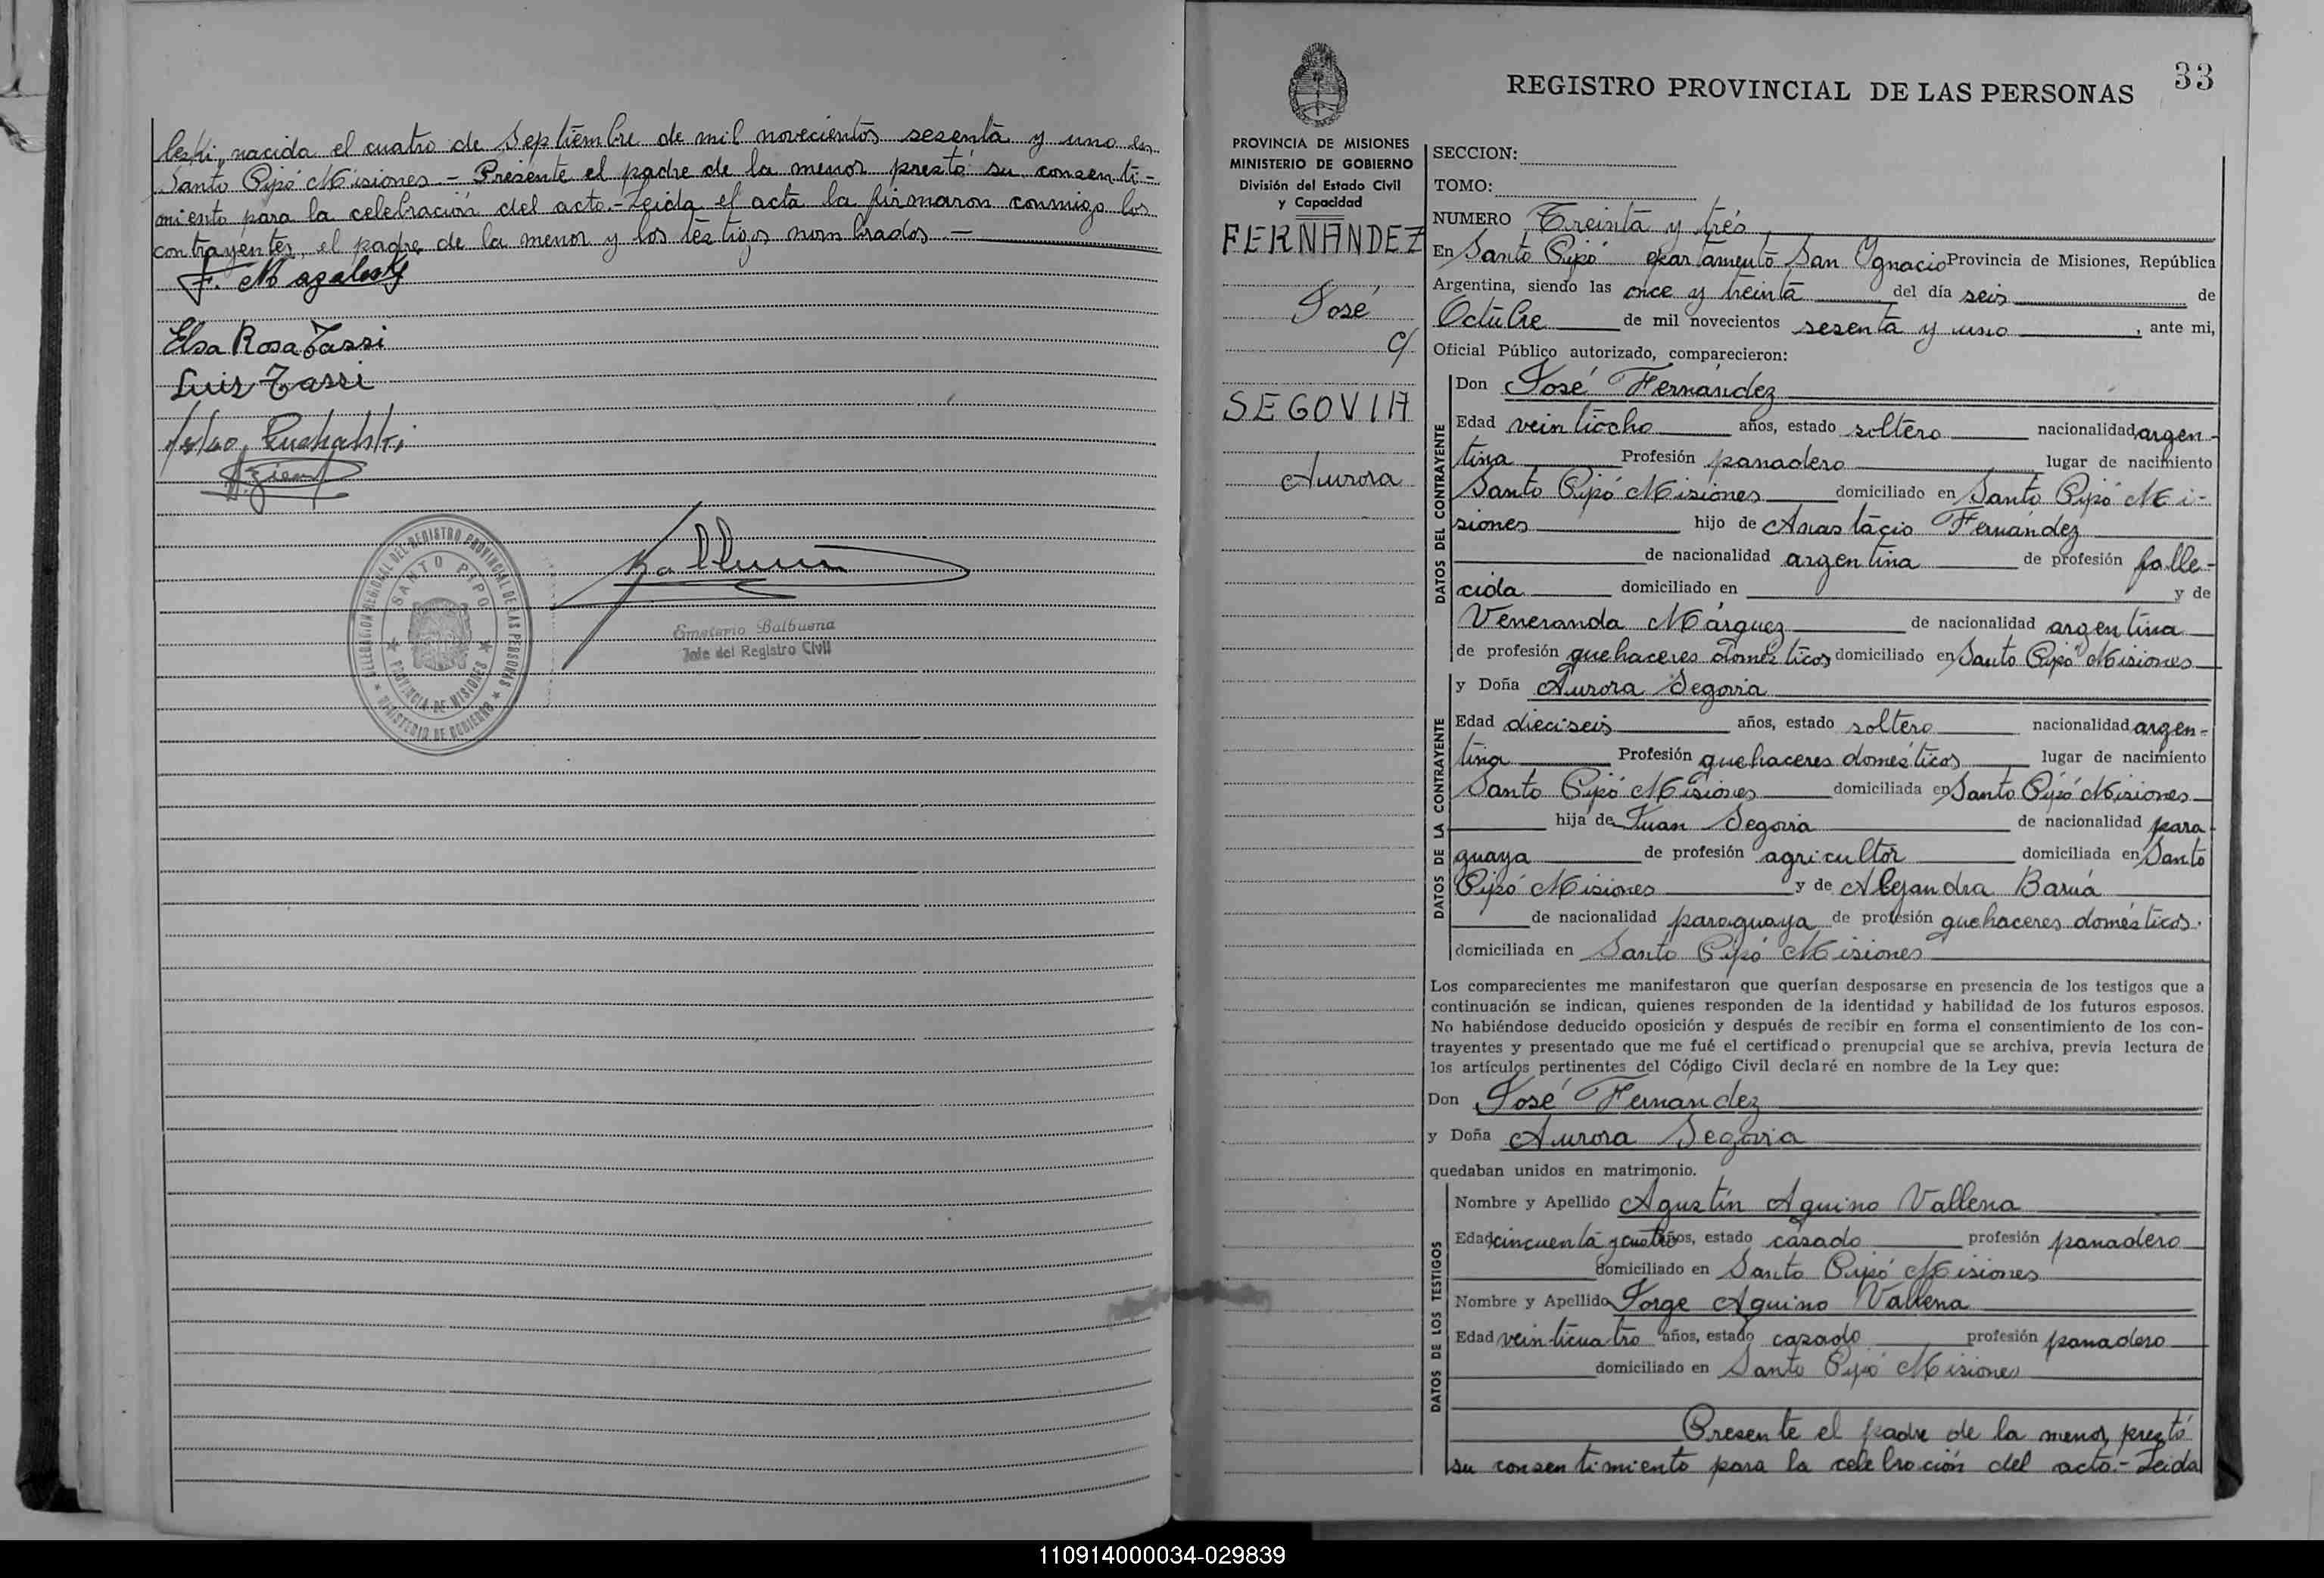 leski, nacida el cuatro de Septiembre de mil novecientos sesenta y uno en
Santo Pipó Misiones.- Presente el padre de la menor prestó su consenti-
miento para la celebración del acto.- Leida el acta la firmaron conmigo los
contrayentes, el padre de la menor y los testigos nombrados.-
Elsa Rosa Tassi
Luis Tassi
DELEGACION REGIONAL DEL REGISTRO PROVINCIAL DE LAS PERSONAS
SANTO PIPO
PROVINCIA DE MISIONES
MINISTERIO DE GOBIERNO
Emeterio Balbuena
Jefe del Registro Civil
33
REGISTRO PROVINCIAL DE LAS PERSONAS
PROVINCIA DE MISIONES
MINISTERIO DE GOBIERNO
División del Estado Civil
y Capacidad
FERNANDEZ
José
c/
SEGOVIA
Aurora
SECCION:
TOMO:
NUMERO Treinta y trés
En Santo Pipó epartamento San Ygnacio Provincia de Misiones, República
Argentina, siendo las once y treinta del día seis de
Octubre de mil novecientos sesenta y uno, ante mi,
Oficial Público autorizado, comparecieron:
DATOS DEL CONTRAYENTE
Don José Fernández
Edad veintiocho años, estado soltero nacionalidad argen-
tina Profesión panadero lugar de nacimiento
Santo Pipó Misiones domiciliado en Santo Pipó Mi-
siones hijo de Anastacio Fernández
de nacionalidad argentina de profesión falle-
cida domiciliado en y de
Veneranda Márquez de nacionalidad argentina
de profesión quehaceres domésticos domiciliado en Santo Pipó Misiones
DATOS DE LA CONTRAYENTE
y Doña Aurora Segovia
Edad dieciseis años, estado soltera nacionalidad argen-
tina Profesión quehaceres domésticos lugar de nacimiento
Santo Pipó Misiones domiciliada en Santo Pipó Misiones
hija de Juan Segovia de nacionalidad para-
guaya de profesión agricultor domiciliada en Santo
Pipó Misiones y de Alejandra Barúa
de nacionalidad paraguaya de profesión quehaceres domésticos.
domiciliada en Santo Pipó Misiones
Los comparecientes me manifestaron que querían desposarse en presencia de los testigos que a
continuación se indican, quienes responden de la identidad y habilidad de los futuros esposos.
No habiéndose deducido oposición y después de recibir en forma el consentimiento de los con-
trayentes y presentado que me fué el certificado prenupcial que se archiva, previa lectura de
los artículos pertinentes del Código Civil declaré en nombre de la Ley que:
Don José Fernandez
y Doña Aurora Segovia
quedaban unidos en matrimonio.
DATOS DE LOS TESTIGOS
Nombre y Apellido Agustín Aquino Vallena
Edad cincuenta y cuatro años, estado casado profesión panadero
domiciliado en Santo Pipó Misiones
Nombre y Apellido Jorge Aquino Vallena
Edad veinticuatro años, estado casado profesión panadero
domiciliado en Santo Pipó Misiones
Presente el padre de la menor, prestó
su consentimiento para la celebración del acto.- Leida
110914000034-029839